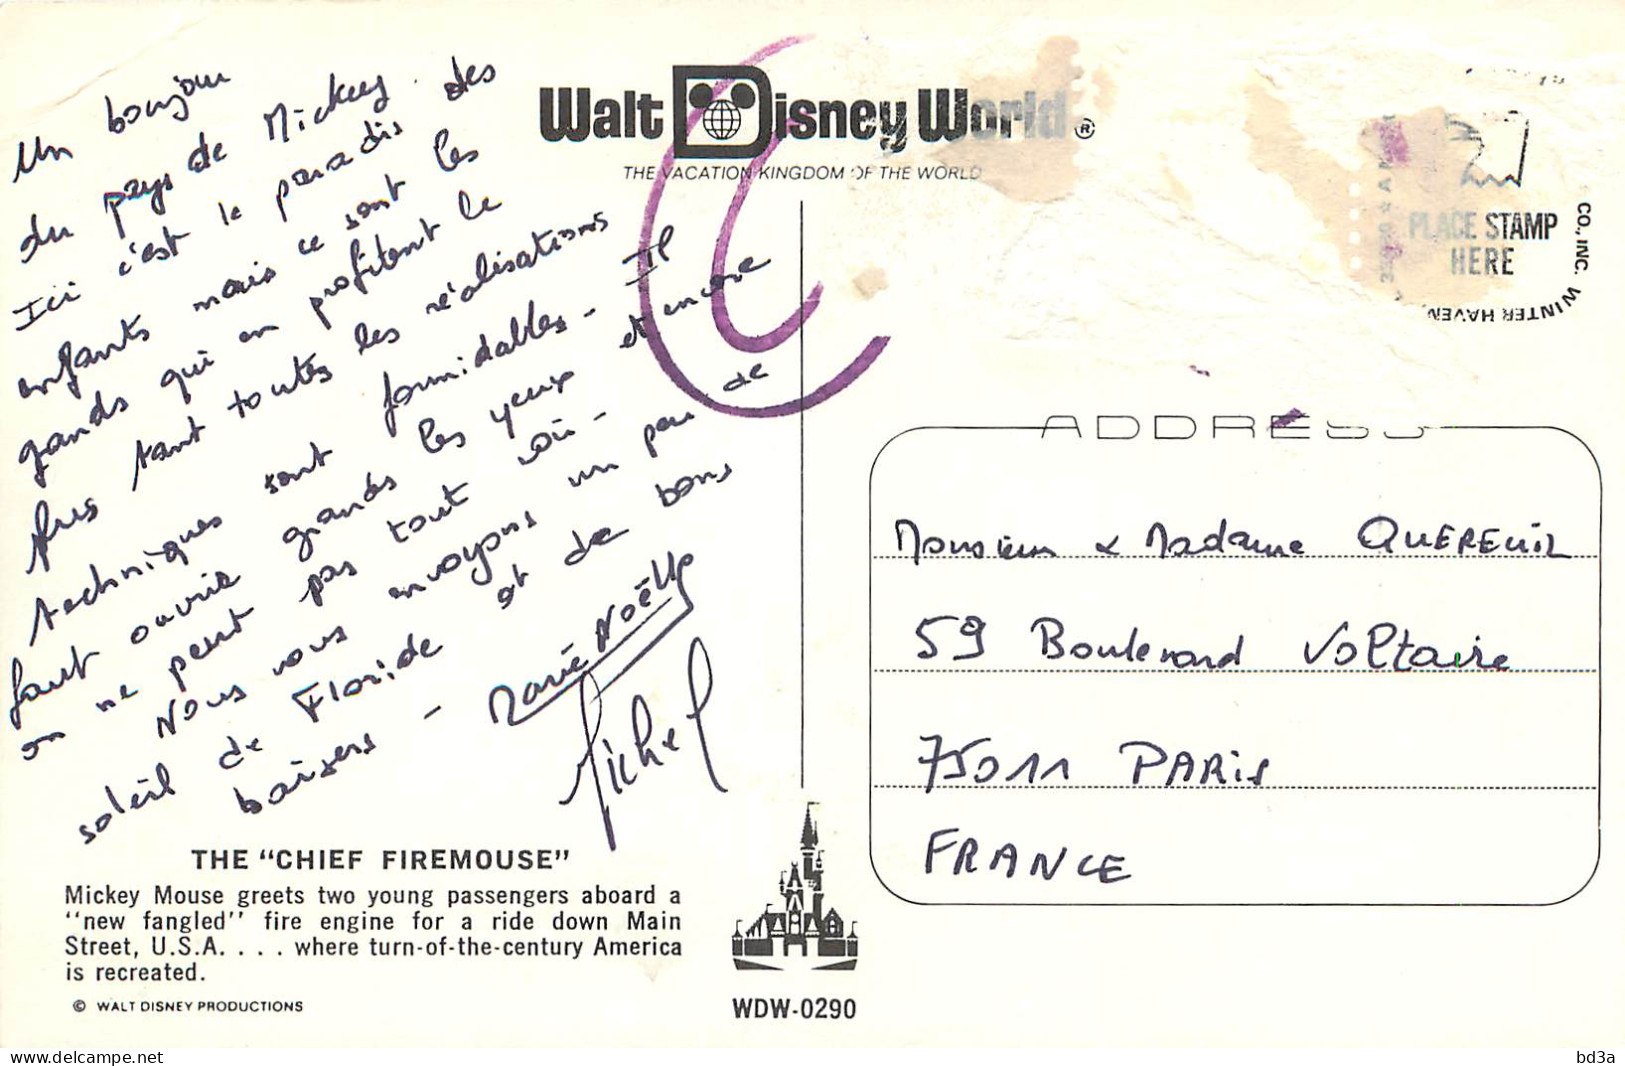 Un bonjour
du pays de Mickey.
Ici c'est le paradis des
enfants mais ce sont les
grands qui en profitent le
plus tant toutes les réalisations
techniques sont formidables - Il
faut ouvrir grands les yeux et encore
on ne peut pas tout voir -
Nous vous envoyons un peu de
soleil de Floride et de bons
baisers -
Marie Noëlle
Michel
Walt Disney World®
THE VACATION KINGDOM OF THE WORLD
PLACE STAMP
HERE
CO., INC. WINTER HAVEN,
ADDRESS
Monsieur & Madame QUEREUIL
59 Boulevard Voltaire
75011 PARIS
FRANCE
THE "CHIEF FIREMOUSE"
Mickey Mouse greets two young passengers aboard a
"new fangled" fire engine for a ride down Main
Street, U.S.A. . . . where turn-of-the-century America
is recreated.
© WALT DISNEY PRODUCTIONS
WDW-0290
www.delcampe.net
bd3a